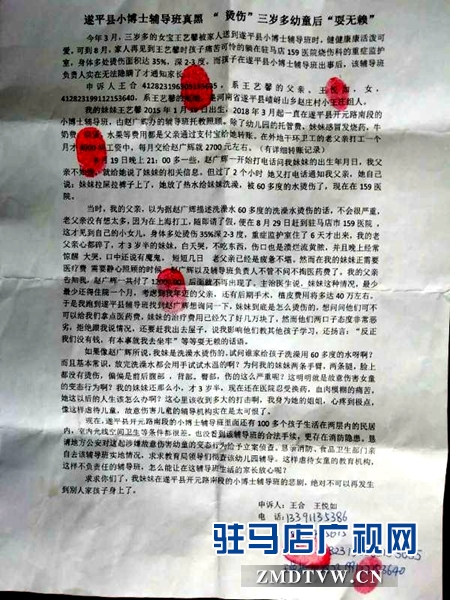 遂平县小博士辅导班真黑 “烫伤”三岁多幼童后“耍无赖”
今年3月，三岁多的女宝王艺馨被家人送到遂平县小博士辅导班时，健健康康活泼可
爱，可到8月，家人再见到王艺馨时孩子痛苦可怜的躺在驻马店159医院烧伤科的重症监护
室，身体多处烫伤面积达35%，深2-3度，而孩子在遂平县小博士辅导班出事后，该辅导班
负责人实在无法隐瞒了才通知家长
申诉人王合 系王艺馨的父亲，王悦如，女，
412823199112153640，系王艺馨的 是河南省遂平县嵖岈山乡赵庄村小王庄组人。
我的妹妹王艺馨2015年1月 2018年3月起一直在遂平县开元路南段的
小博士辅导班，由赵广辉的辅导班托教照顾，除了幼儿园的托管费、妹妹感冒发烧药、牛
奶费 水果等费用都是父亲通过支付宝给她转账。在外地干环卫工的老父亲打工一个
月才 工资中，每月交给赵广辉就2700元左右。（有详细转账记录）
19日晚上21：00多一些，赵广辉一开始打电话问我妹的出生年月日，我父
亲不知 就给她说了妹妹的相关信息。但过了2个小时 她又打电话通知我父亲，她自己
说：妹妹拉屎拉裤子上了，她放了热水给妹妹洗澡，被60多度的水烫伤了，现在在159医
院。
当时，我的父亲，以为据赵广辉描述洗澡水60多度的洗澡水烫伤的话，不会很严重，
老父亲没有想太多，因为在上海打工，随即请了假，便在8月29日赶到驻马店市159医院，
这才见到自己的小女儿，身体多处烫伤35%深2-3度，重症监护室住了6天才出来，我的老
父亲心都碎了，才3岁半的妹妹，白天哭，不吃东西，伤口也是溃烂流黄脓，并且晚上经常
惊醒 大哭，口中还说有魔鬼， 短短几日 老父亲已经是疲惫不堪，然而在我的妹妹正需要
医疗费 需要静心照顾的时候 赵广辉以及辅导班负责人不管不问不掏医药费了。我的父亲
去问我，赵广辉一共付了 后面就不再出现了。主治医生说，妹妹这种情况，最少
最少还得住院一个月，考虑到我年迈的父亲，还有后期手术，植皮费用将多达40万左右。
于是我跑到遂平县辅导班找到赵广辉想询问一下，妹妹到底是怎么烫伤的，想问问他们可不
可以给我们拿点医药费，妹妹的治疗费用已经欠了好几万块了，然而他们两口子态度非常恶
劣，拒绝跟我说情况，还要赶我出去屋子，说我影响他们教其他孩子学习，还扬言：“反正
我们没有钱，有本事就我去坐牢” 等等耍无赖的话语。
如果像赵广辉所说，我妹是洗澡水烫伤的，试问谁家给孩子洗澡用60多度的水呀啊？
而且基本常识，放完洗澡水都会用手试试水温的啊？为何我的妹妹两条手臂，两条腿，脸上
都没有烫伤，偏偏是前后腹部 ，背部，臀部，伤的这么严重呢？ 这明明就是故意伤害女童
的变态行为啊？我的妹妹还那么小，才3岁半，现在还在医院忍受换药，血肉模糊的痛苦，
她这以后的人生该怎么办啊？这心里该收到多大的打击啊，我身为她的姐姐，心疼到极点，
像这样虐待儿童，故意伤害儿童的辅导机构实在是太可恨了。
现在，遂平县开元路南段的小博士辅导班里面还有100多个孩子生活在两层内的民居
内，室内光线空间卫生等条件都很差，也没看到该辅导班的合法手续，更存在消防隐患，恳
请地方公安对这起涉嫌故意伤害幼童的变态行为给予立案侦查，恳请消防、食品卫生部门亲
自去该辅导班实地情况，求求教育局领导们彻查该幼儿园辅导，这样虐待女童的教育机构，
这样不负责任的辅导班，怎么能让在这辅导班生活的家长放心呢？
求求你们了，我妹妹在遂平县开元路南段的小博士辅导班的悲剧，绝对不可以再发生
到别人家孩子身上了。
申诉人：王合 王悦如
电 话：13391135386
驻马店广视网
ZMDTVW.CN